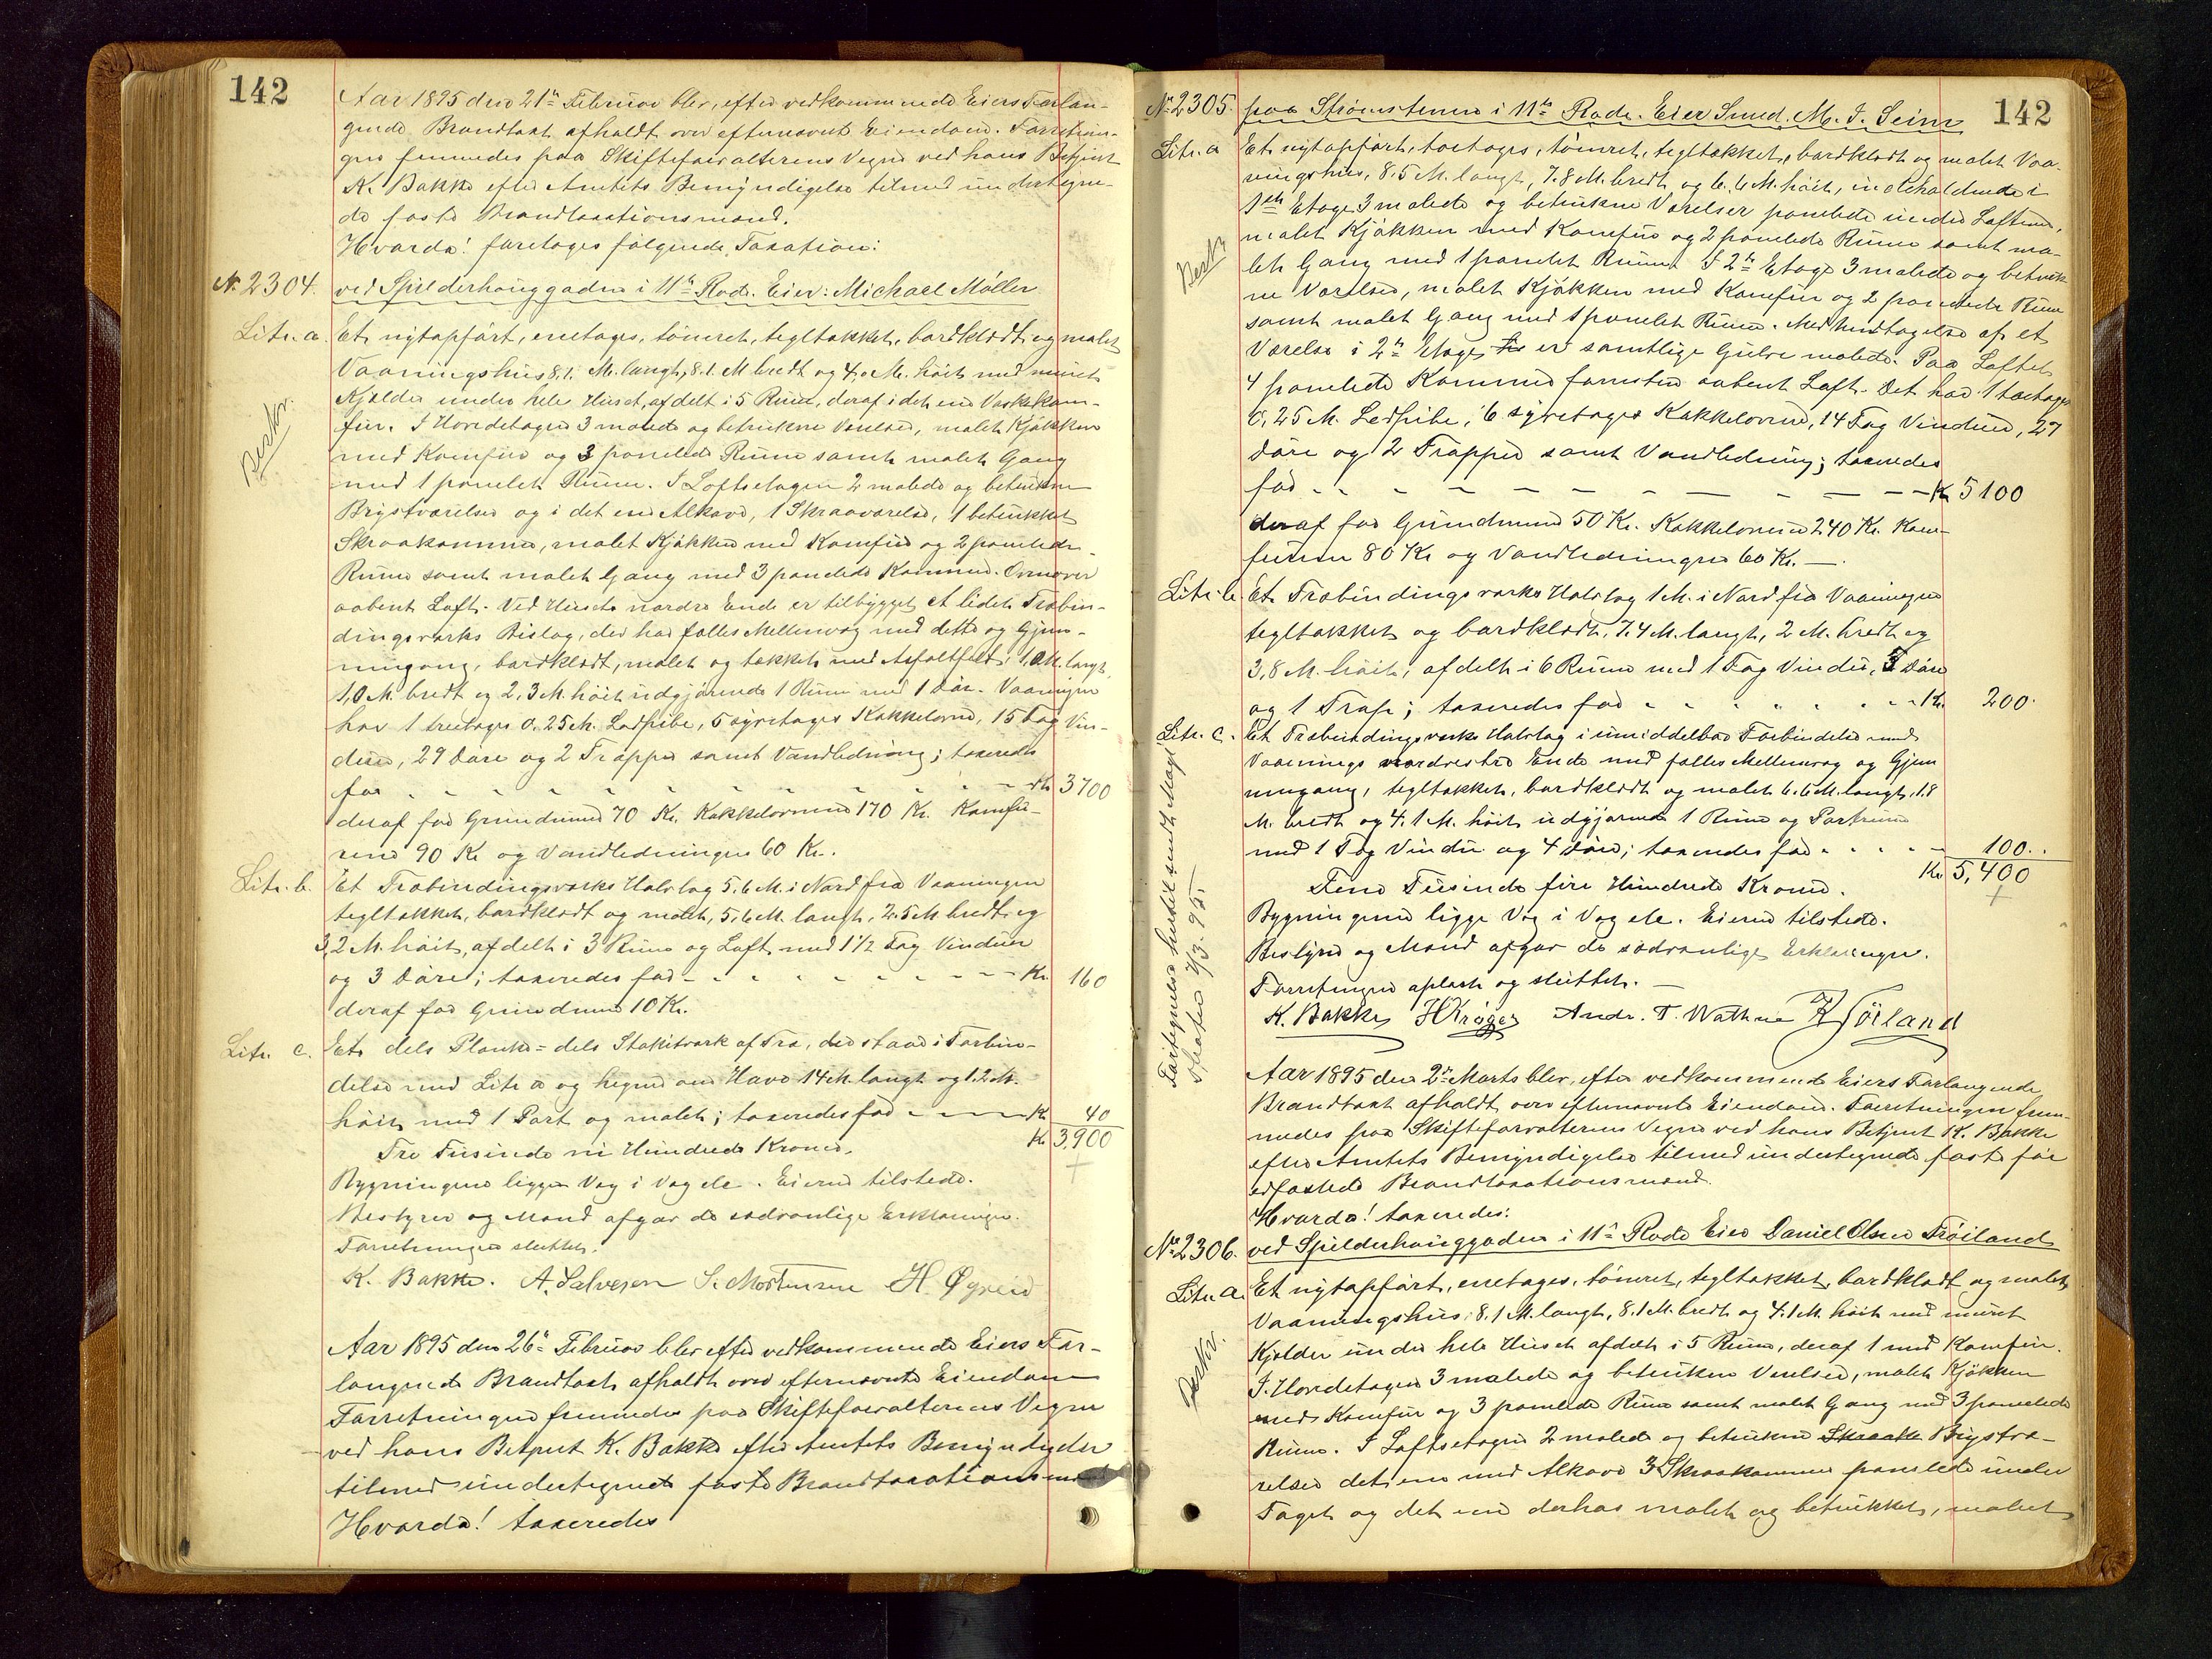 142
Aar 1895 den 21de Februar blev, efter vedkommende Eiers Forlan-
gende Brandtaxt afholdt over efternævnte Eiendom. Forretnin-
gen fremmedes paa Skifteforvalterens Vegne ved hans Betjent
K. Bakke efter Amtets Bemyndigelse tilmed undertegne-
de faste Brandtaxationsmænd.
Hvorda! foretoges følgende Taxation:
No. 2304. ved Spilderhauggaden i 11te Rode. Eier: Michael Møller
Litr. a. Et nyopført, enetages, tømret, tegltækket, bordklædt og malet
Vaaningshus 8.1. M. langt, 8.1. M bredt og 4,0 M. høit med muret
Kjælder under hele Huset, afdelt i 5 Rum, deraf i det ene Vaskekom-
Beskr.
fur. I Hovedetagen 3 malede og betrukne Værelser, malet Kjøkken
med Komfur og 3 panelede Rum samt malet Gang
med 1 panelet Rum. I Loftsetagen 2 malede og betrukne
Brystværelser og i det ene Alkove, 1 Skraaværelse, 1 betrukket
Skraakammer, malet Kjøkken med Komfur og 2 panelede
Rum samt malet Gang med 3 panelede Kammer. Ovenover
aabent Loft. Ved Husets nordre Ende er tilbygget et lidet Træbin-
dingsværks Bislag, der har fælles Mellemvæg med dette og Gjen-
nemgang, bordklædt, malet og tækket med Asfaltfilt, 1,0 M. langt,
1,0 M. bredt og 2,3 M. høit udgjørende 1 Rum med 1 Dør. Vaaningen
har 1 treetages 0.25 M. Ledpibe, 5 syvetages Kakkelovne, 15 Fag Vin-
duer, 29 Døre og 2 Trapper samt Vandledning; taxeredes
for - - - - - - - - - - Kr 3700
deraf for Grundmur 70 Kr. Kakkelovnene 170 Kr. Komfu-
rene 90 Kr og Vandledningen 60 Kr.
Litr. b. Et Træbindingsværks Halvtag 5.6 M. i Nord fra Vaaningen
tegltækket, bordklædt og malet, 5,6 M. langt, 2.5 M bredt og
3,2 M. høit, afdelt i 3 Rum og Loft med 1 1/2 Fag Vinduer
og 3 Døre; taxeredes for - - - - - - - - - Kr. 160
deraf for Grundmur 10 Kr.
Litr. c. Et dels Planke= dels Stakitværk af Træ, der staar i Forbin-
delse med Litr a og hegner om Have 14 M. langt og 1.2 M.
høit med 1 Port og malet; taxeredes for - - - - Kr 40
Kr 3900
Tre Tusinde ni Hundrede Kroner.
Bygningerne ligger Væg i Væg ele. Eieren tilstede.
Bestyrer og Mænd afgav de sædvanlige Erklæringer.
Forretningen sluttet.
K. Bakke. A. Salvesen S. Mortensen H. Øgreid
Aar 1895 den 26de Februar blev efter vedkommende Eiers For-
langende Brandtaxt afholdt over efternævnte Eiendom
Forretningen fremmedes paa Skifteforvalterens Vegne
ved hans Betjent K. Bakke efter Amtets Bemyndigelse
tilmed undertegnede faste Brandtaxationsmænd
Hvorda! taxeredes
142
No 2305. paa Strømstenen i 11te Rode. Eier Smed. M. I. Seim
Litr. a Et nyopført, toetages, tømret, tegltækket, bordklædt og malet Vaa-
ningshus, 8.5 M. langt, 7.8 M. bredt og 6.6 M. høit, indeholdende i
1ste Etage 3 malede og betrukne Værelser panelede under Loftene,
malet Kjøkken med Komfur og 2 panelede Rum samt ma-
Beskr.
let Gang med 1 panelet Rum. I 2den Etage 3 malede og betruk-
ne Værelser, malet Kjøkken med Komfur og 2 panelede Rum
samt malet Gang med 1 panelet Rum. Med Undtagelse af et
Værelse i 2den Etage er samtlige Gulve malede. Paa Loftet
4 panelede Kammer forresten aabent Loft. Det har 1 toetages
0,25 M. Ledpibe, 6 syvetages Kakkelovne, 14 Fag Vinduer, 27
Døre og 2 Trapper samt Vandledning; taxeredes
for - - - - - - - - - - Kr 5100
deraf for Grundmur 50 Kr. Kakkelovnene 240 Kr. Kom-
furene 80 Kr og Vandledningen 60 Kr.
Litr. b. Et Træbindingsværks Halvtag 1 M. i Nord fra Vaaningen
tegltækket og bordklædt, 7.4 M. langt, 2 M. bredt og
3,8 M. høit, afdelt i 6 Rum med 1 Fag Vindu, 3 Døre
og 1 Trap; taxeredes for - - - - - - - Kr. 200.
Litr. c. Et Træbindingsværks Halvtag i umiddelbar Forbindelse med
Vaanings nordvestre Ende med fælles Mellemvæg og Gjen
nemgang, tegltækket, bordklædt og malet 6.6 M. langt, 1.8
M. bredt og 4.1 M. høit udgjørende 1 Rum og Portrum
med 1 Fag Vindu og 4 Døre; taxeredes for - - - - 100..
Kr 5,400
Fem Tusinde fire Hundrede Kroner.
Bygningerne ligge Væg i Væg ele. Eieren tilstede.
Bestyrer og Mænd afgav de sædvanlige Erklæringer.
Forretningen oplæst og sluttet.
K. Bakke H Krøger Andr. T. Wathne K Sörland
Aar 1895 den 2den Marts blev, efter vedkommende Eiers Forlangende
Brandtaxt afholdt over efternævnte Eiendom. Forretningen frem-
medes paa Skifteforvalterens Vegne ved hans Betjent K. Bakke
efter Amtets Bemyndigelse tilmed undertegnede faste før
edfæstede Brandtaxationsmænd.
Hvorda! taxeredes:
No 2306. ved Spilderhauggaden i 11te Rode Eier Daniel Olsen Frøiland
Litr. a. Et nyopført, enetages, tømret, tegltækket, bordklædt og malet
Vaaningshus, 8.1 M. langt, 8.1 M. bredt og 4.1 M. høit med muret
Beskr.
Kjelder under hele Huset afdelt i 5 Rum, deraf 1 med Komfur.
I Hovedetagen 3 malede og betrukne Værelser, malet Kjøkken
med Komfur og 3 panelede Rum samt malet Gang med 3 panelede
Rum. I Loftsetagen 2 malede og betrukne Skraak Brystvæ-
relser det ene med Alkove 3 Skraakammer panelede under
Taget og det ene derhos malet og betrukket, malet